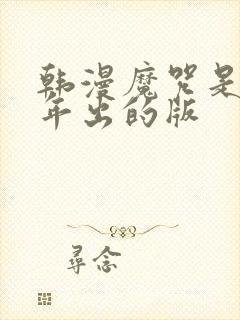 韩漫魔咒是
年出的版
寻念